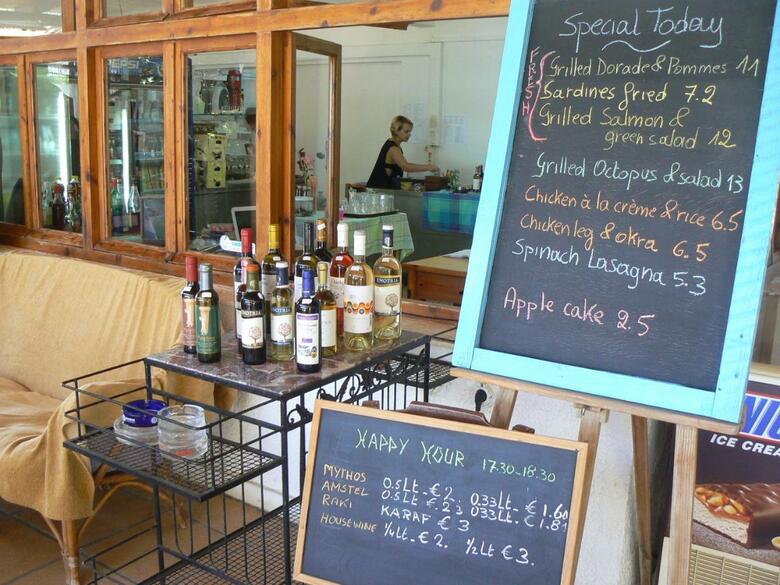 Special Today
FRESH
Grilled Dorade & Pommes 11
Sardines fried 7.2
Grilled Salmon &
green salad 12
Grilled Octopus & salad 13
Chicken à la crème & rice 6.5
Chicken leg & okra 6.5
Spinach Lasagna 5.3
Apple cake 2.5
HAPPY HOUR 17.30-18.30
MYTHOS 0.5Lt - € 2. 0.33Lt - € 1.60
AMSTEL 0.5Lt - € 2.
RAKI KARAF € 3
HOUSEWINE 1/4Lt. € 2. 1/2Lt € 3.
ENOTRIA
ICE CREA